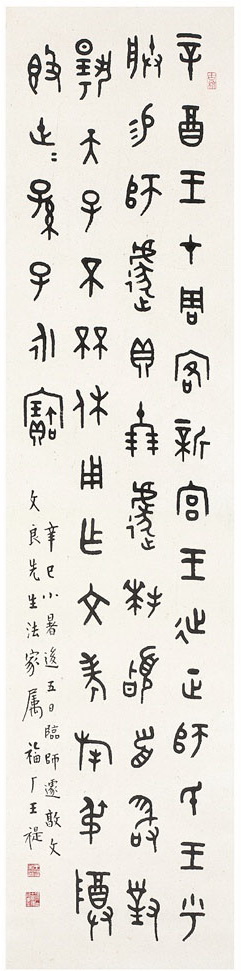 辛酉王才周客新宮王延正師氏王乎
朕易師遽貝十朋遽拜稽首敢對
揚天子不㔻休用乍文考旄叔尊
世孫子永寶
辛巳小暑後五日臨師遽敦文
文良先生法家属 福厂王禔